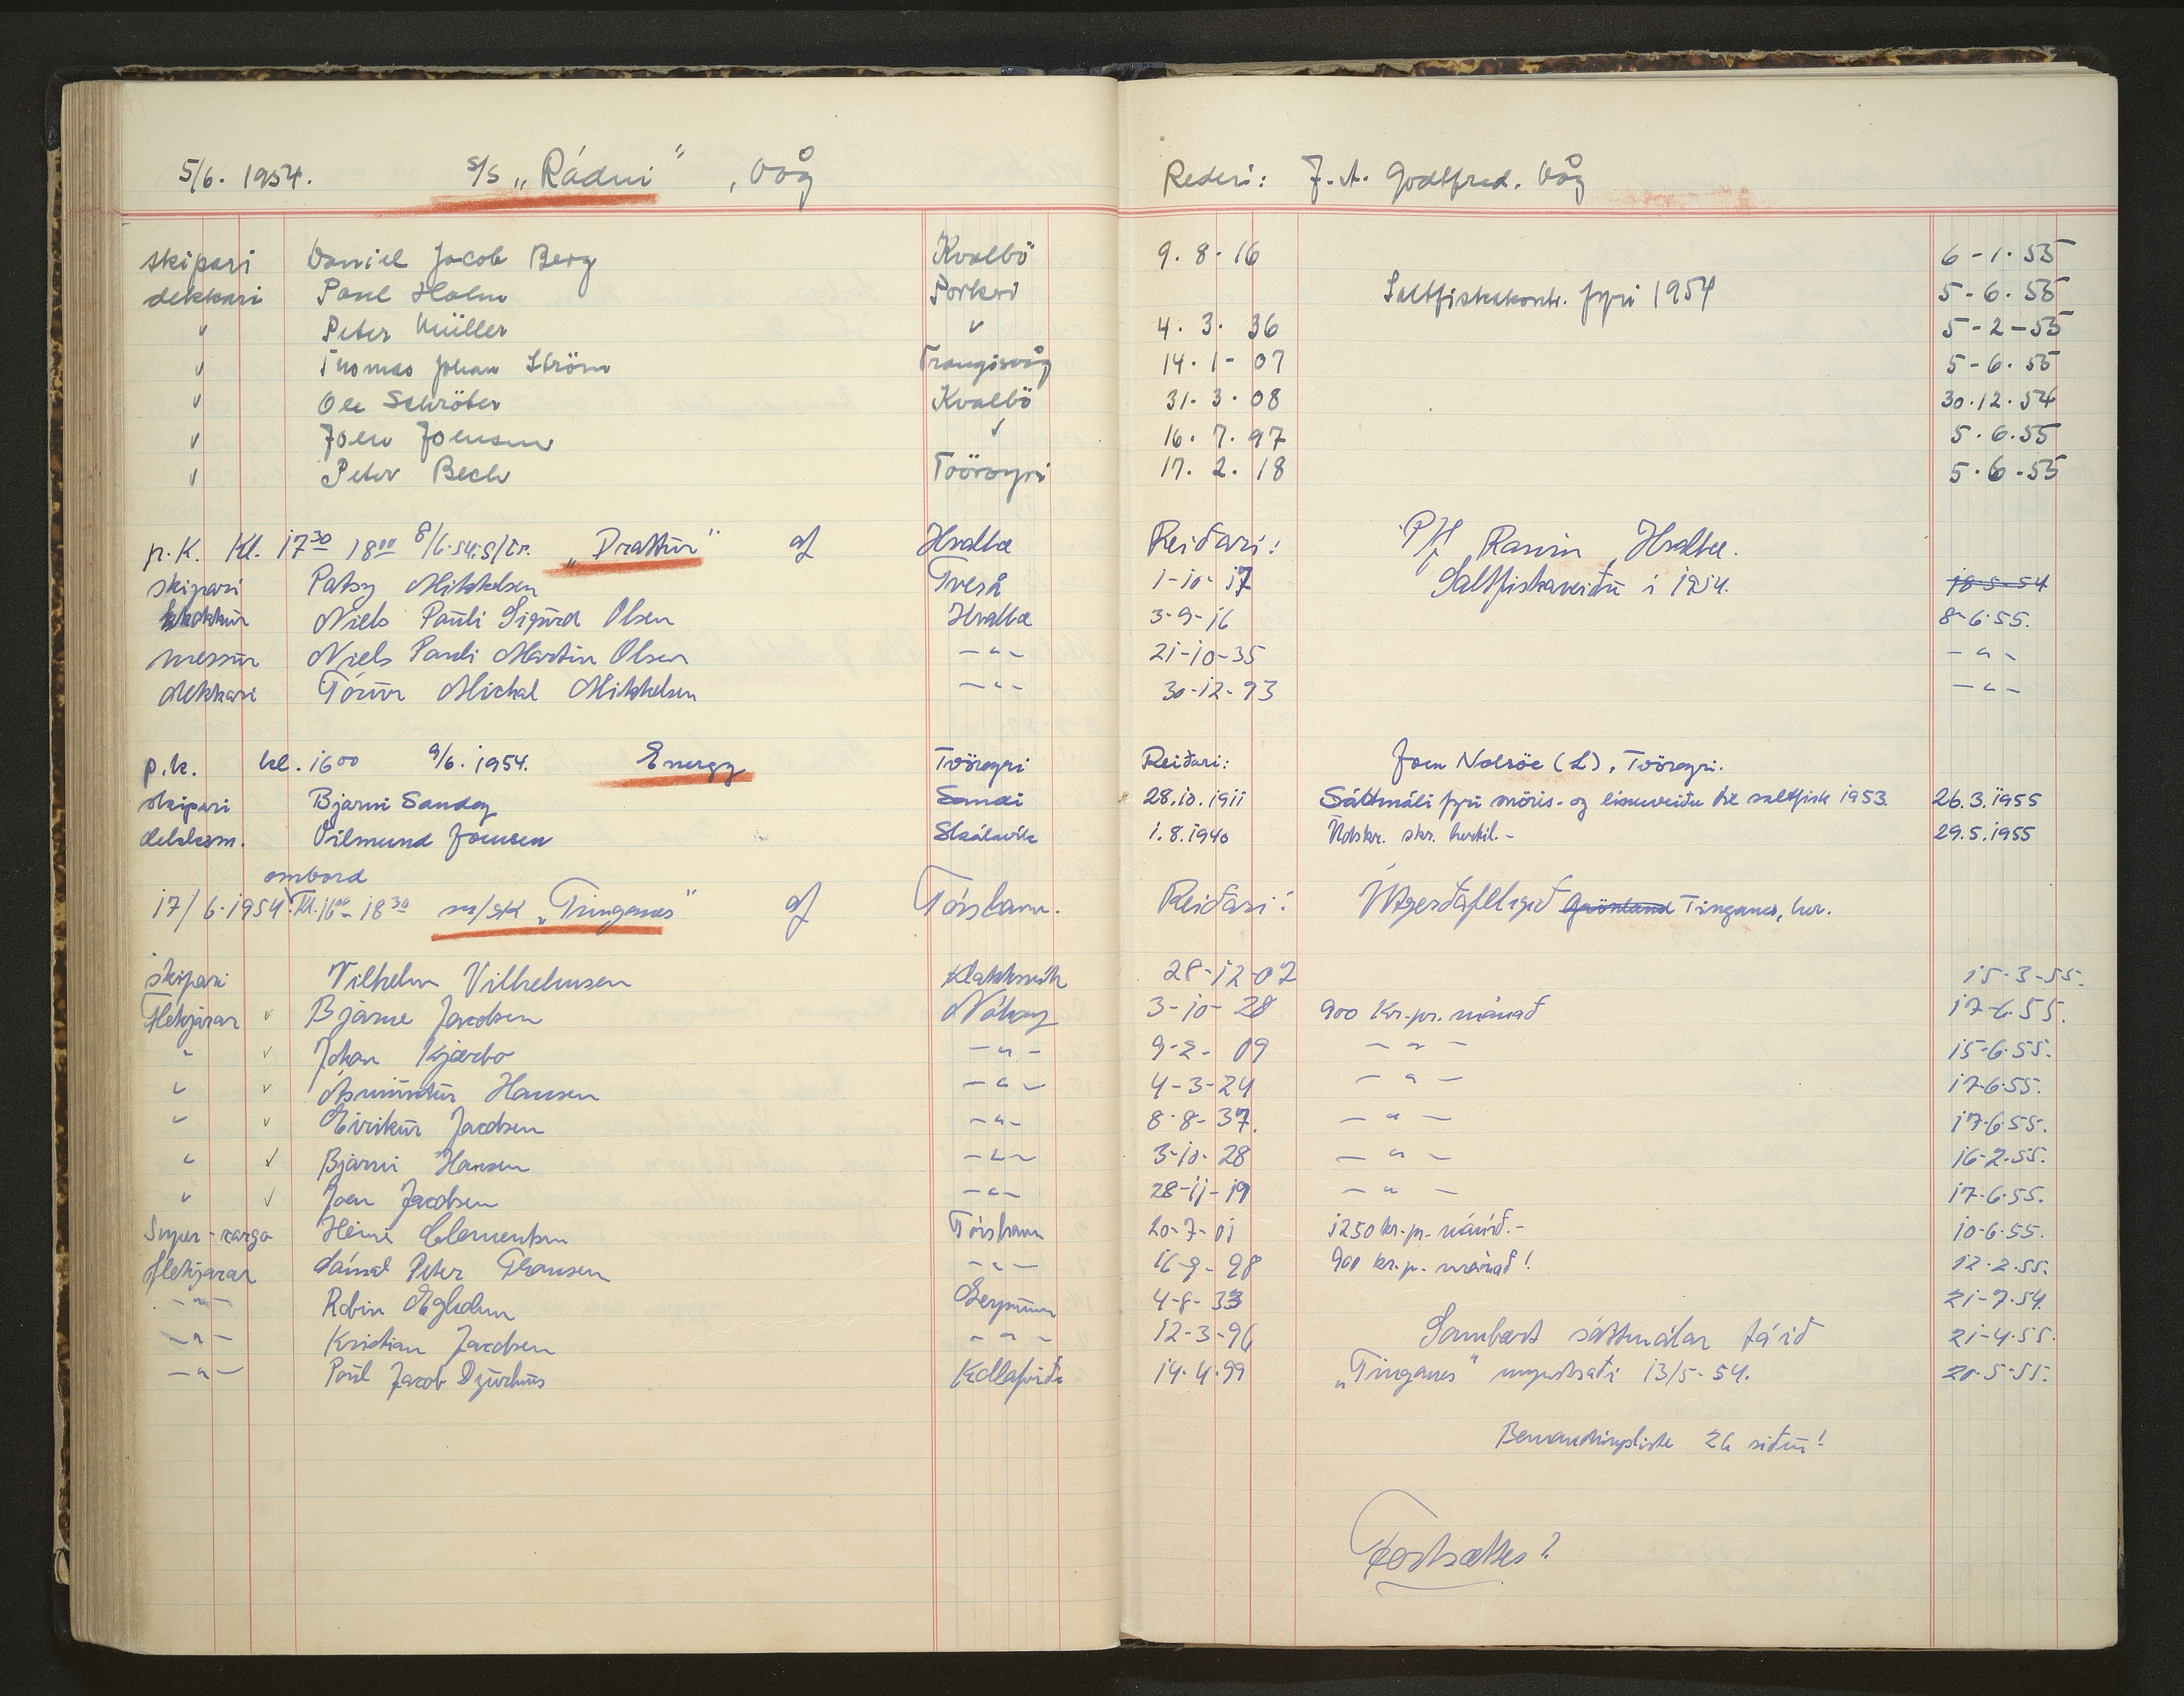 5/6. 1954. s/s „Rádni" , Våg Rederi: J. A. Godtfred. Våg
skipari Daniel Jacob Berg Kvalbö 9. 8. 16 6-1. 55
dekkari Poul Holm Porkeri Saltfiskakontr. fyri 1954 5-6. 55
" Peter Müller " 4. 3. 36 5-2-55
" Thomas Johan Ström Trangisvåg 14. 1- 07 5-6. 55
" Ole Schröter Kvalbö 31. 3. 08 30.12.54
" Joen Joensen " 16. 7. 97 5. 6. 55
" Peter Bech Tvöroyri 17. 2. 18 5. 6 -55
p.K. Kl. 17 30 18 00 8/6.54. S/tr. „Drattur" af Hvalba Reiðari: P/f Ravin, Hvalba.
skipari Patsy Mikkelsen Tverå 1-10-17 Saltfiskaveiðu i 1954. 18-5-54
kokkur Niels Pauli Sigurd Olsen Hvalba 3-9-16 8-6.55.
messur Niels Pauli Martin Olsen -"- 21-10-35 -"-
dekkari Tórur Michal Mikkelsen -"- 30-12-93 -"-
p.k. kl. 16 00 9/6. 1954. Energy Tvöroyri Reiðari: Joen Nolsöe (L), Tvöroyri.
skipari Bjarni Sandoy Sandi 28.10.1911 Sáttmáli fyri snöris- og linuveiðu til saltfisk 1953. 26.3.1955
dekksm. Vilmund Joensen Skálavík 1.8.1940 Útskr. skr. 29.5.1955
ombord
17/6.1954. Kl. 16 00 - 18 30 m/sk „Tinganes" af Tórshavn. Reiðari: Útgerðafelagið Grönland Tinganes, her.
skipari Vilhelm Vilhelmsen Klakksvík 28-12-07 15-3-55.
Flekjarar Bjarne Jacobsen Nólsoy 3-10-28 900 Kr. pr. mánað 17-6.55.
" Johan Kjærbo -"- 9-2- 09 -"- 15-6.55.
" Ásmundur Hansen -"- 4-3-24 -"- 17-6.55.
" Eirikur Jacobsen -"- 8-8-37. -"- 17.6.55.
" Bjarni Hansen -"- 3-10-28 -"- 16-2.55.
" Joen Jacobsen -"- 28-11-19 -"- 17.6.55.
Super-cargo Heini Clementsen Tórshavn 20-7-01 1250 kr. pr. mánað.- 10-6.55.
flekjarar Dánial Peter Thomsen -"- 16-9-98 900 kr. p. mánað! 12.2.55.
-"- Robin Eyholm 4-8-33 21-7.54.
-"- Kristian Jacobsen -"- 12-3-96 Sambært sáttmálar táið 21-4.55.
-"- Poul Jacob Djurhuus Kollafirði 14.4.99 „Tinganes" 13/5-54. 20.5.55.
Bemandingsliste 26 siðu!
Fortsættes?